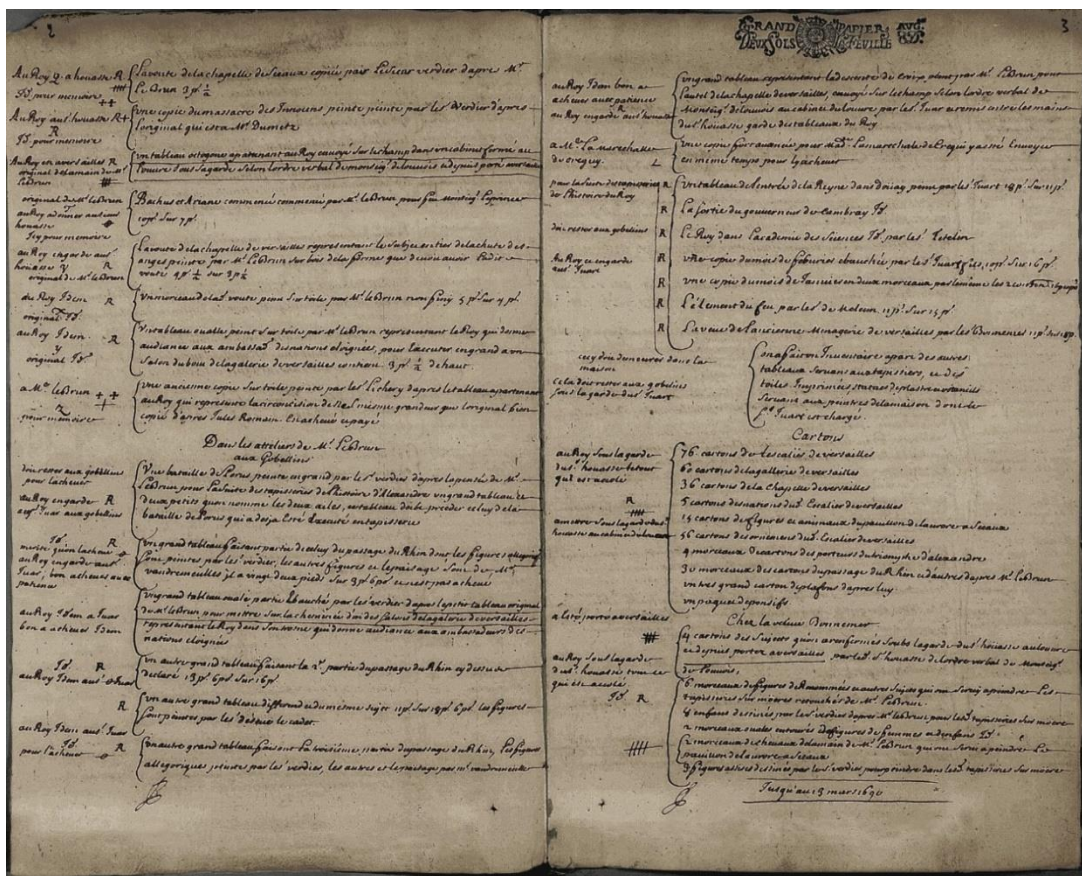 2
Au Roy a houasse R
La voute de la chapelle de Sceaux copiée par Le Sieur verdier dapres Mr.
Le Brun 3 p. ½
Id. pour memoire
Au Roy aud. houasse R
Une copie du massacre des Innocens peinte par les Verdier dapres
loriginal qui est a Mr. Dumetz
Id. pour memoire
Au Roy en aversailles R
original de la main de Mr.
LeBrun
Un tableau octogone apartenant au Roy envoyé sur le champ dans
Louvre sous la garde selon lordre verbal de monseig. de Louvois et depuis porté
original de Mr. LeBrun
au Roy
houasse
Icy pour memoire
Bachus et Ariane commencé par Mr. leBrun pour feu Monseig. Leprince
sur 7 p.
au Roy en garde aud.
houasse R
original de Mr. leBrun
La voute de la chapelle de versailles representant le Subject de la chute des
anges peinte par Mr. LeBrun sur bois de la forme que devoit avoir Ladite
voute 4 p. ½ sur 3 p ½
du Roy Idem R
original Id.
Un morceau de la voute peint sur toile par Mr. leBrun non finy 5 p. sur 4 p.
au Roy Idem R
original Id.
Un tableau ovalle peint sur toile par Mr. leBrun representant le Roy qui donne
audiance aux ambassad. des nations eloignées, pour Executer en grand a un
Salon du bout de la galerie de versailles 3 p. ½ de haut
a Mr. leBrun
pour memoire
Une antienne copie sur toile peinte par les dapres le tableau apartenant
au Roy qui represente la circoncision de mesme grandeur que loriginal bien
copié dapres Jules Romain
Dans les atteliers de Mr. LeBrun
aux Gobellins
doit rester aux gobellins
pour lachever
au Roy en garde R
aud. Juar aux gobellins
Une bataille de Porus, peinte en grand par les. verdier dapres la pensée de Mr.
LeBrun pour La suite des tapisseries de lhistoire d'Alexandre un grand tableau et
deux petits quon nomme les deux ailes, ce tableau doit preceder celuy de la
bataille de Porus qui a desja Esté Executé en tapisserie
Id. R
merite quon lacheve
au Roy en garde aud.
Juar, bon a achever avec
patience
Un grand tableau faisant partie de celuy du passage du Rhin dont les figures
sont peintes par les. verdier, les autres figures et le paisage sont de Mr.
vandremeulles il a vingt deux pieds sur 3 p. 6 po. et nest pas achevé
au Roy Idem a Juar
bon a achever Idem
Un grand tableau en partie Ebauché par les. verdier dapres le petit tableau original
de Mr. leBrun pour mettre sur la cheminée dun des salons de la galerie de versailles
representant le Roy dans son trosne qui donne audiance aux ambassadeurs des
nations eloignées
Id. R
au Roy Idem aud. Juar
Un autre grand tableau faisant la 2e. partie du passage du Rhin cy dessus
declaré 13 p. 6 po. sur 16 p.
R
au Roy Idem aud. Juar
Un autre grand tableau different du mesme sujet 11 p. sur 18 p. 6 po. les figures
sont peintes par les. le cadet
Id. R
pour lachever
Un autre grand tableau faisant La troisième partie du passage du Rhin, Les figures
allegoriques peintes par les. verdier, les autres et le paisage par Mr. vandremeulle
GRAND PAPIER, AUG.
DEUX SOLS LA FEUILLE
3
au Roy Idem bon a
achever avec patience
R
au Roy en garde aud. houasse
Un grand tableau representant la descente de Croix peint par Mr. LeBrun pour
lautel de la chapelle de versailles, envoyé sur le champ selon lordre verbal de
Monseig. de Louvois au cabinet du Louvre par les. Juar et remis entre les mains
du s. houasse garde des tableaux du Roy
a Me. La marechalle
de crequy
Une copie fort avancée pour Mad. La marechale de Crequi
en mesme temps pour lachever
pour la suite
de lhistoire du Roy
R
Un tableau de lentrée de la Reyne dans Douay, peint par les. Juart 18 p. sur 11 p.
R La sortie du gouverneur de Cambray Id.
doit rester aux gobelins
R Le Roy dans lacademie des Siences Id. par les. Testelin
Au Roy en garde
aud. Juar
R une copie du mois de febvrier ebauchée par les. Juart fils, 10 p. sur 16 p.
R une copie du mois de Janvier en deux morceaux par le mesme
R L'Element du feu par les. de Meleun 11 p. sur 15 p.
R La veue de l'ancienne Menagerie de versailles par les. Boemences 11 p. sur 18 p.
cecy doit demeurer dans la
maison
cela doit rester aux gobelins
sous la garde dud. Juart
on a fait un Inventaire apart des autres
tableaux servans aux tapissiers, et des
toiles Imprimées statues de plastre
servant aux peintres de la maison dont le
Sr. Juart est chargé
Cartons
au Roy sous la garde
du s. houasse le tout
qui est acolé
R
76 cartons de Lescalier de versailles
60 cartons de la gallerie de versailles
36 cartons de la chapelle de versailles
5 cartons des nations dud. Escalier de versailles
15 cartons de figures et animaux du pavillon de laurore a Sceaux
56 cartons des ornemens dud. Escalier de versailles
4 morceaux de cartons des porteurs du triomphe d'alexandre
30 morceaux des cartons du passage du Rhin et d'autres dapres Mr. LeBrun
un tres grand carton de plafons dapres luy
un paquet de ponsifs
a mettre sous la garde du s.
houasse au cabinet
Chez la veuve Bonnemer
a été porté a versailles
4 cartons des Sujets quon a renfermés soubs la garde du s. houasse au louvre
et depuis portez a versailles, par led. s. houasse de lordre verbal de Monseig.
de Louvois,
au Roy sous la garde
du s. houasse tout ce
qui est acolé
Id. R
6 morceaux de figures de Renommées et autres sujets qui ont servy a peindre Les
tapisseries sur moere retouchés de Mr. LeBrun
8 enfans dessinés par les. verdier dapres Mr. leBrun pour les d. tapisseries sur moere
2 morceaux ovales entourés de figures de femmes et denfans Id.
2 morceaux de chevaux de la main de Mr. LeBrun qui ont servi a peindre Le
pavillon de laurore a Sceaux
3 figures assises dessinées par led. s. verdier pour peindre dans les d. tapisseries sur moere
Jusqu'au 13 mars 1690